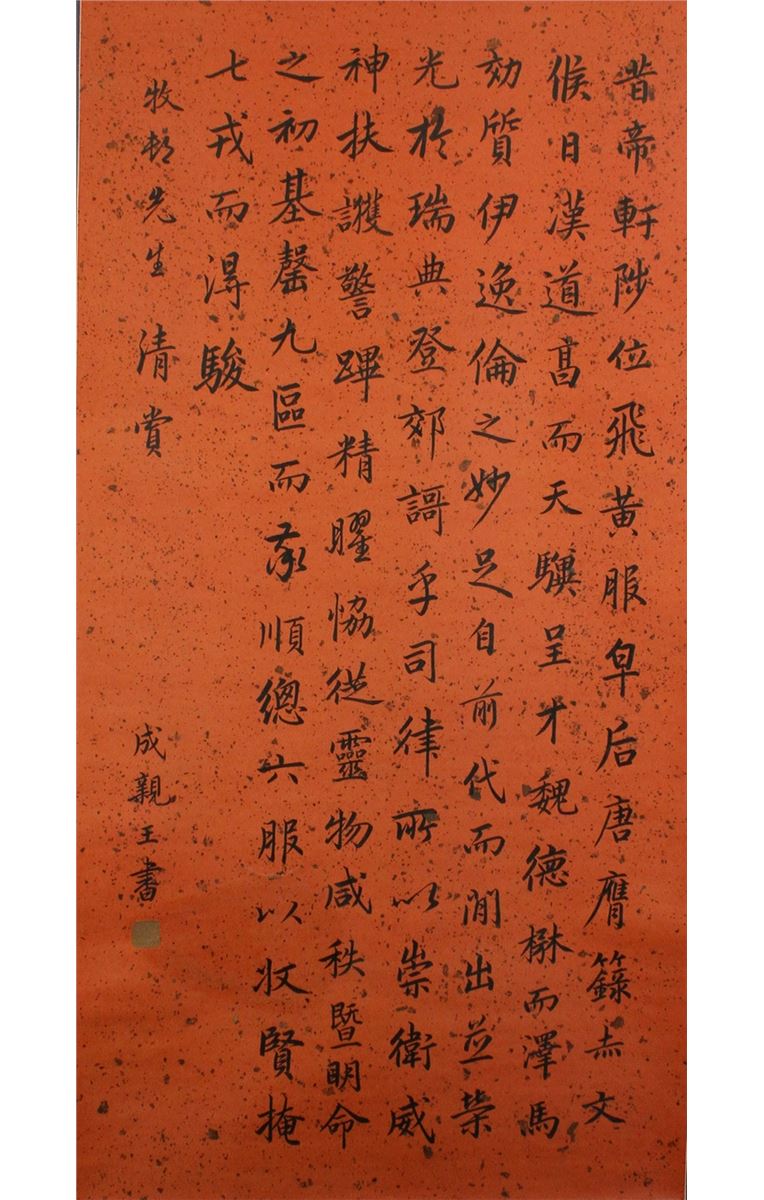 昔帝軒陟位飛黃服皁后唐膺籙赤文
候日漢道昌而天驥呈才魏德楙而澤馬
効質伊逸倫之妙足自前代而間出並榮
光於瑞典登郊謌乎司律所以崇衛威
神扶護警蹕精曜恊從靈物咸秩暨明命
之初基罄九區而率順總六服以收賢掩
七戎而得駿
牧邨先生清賞
成親王書